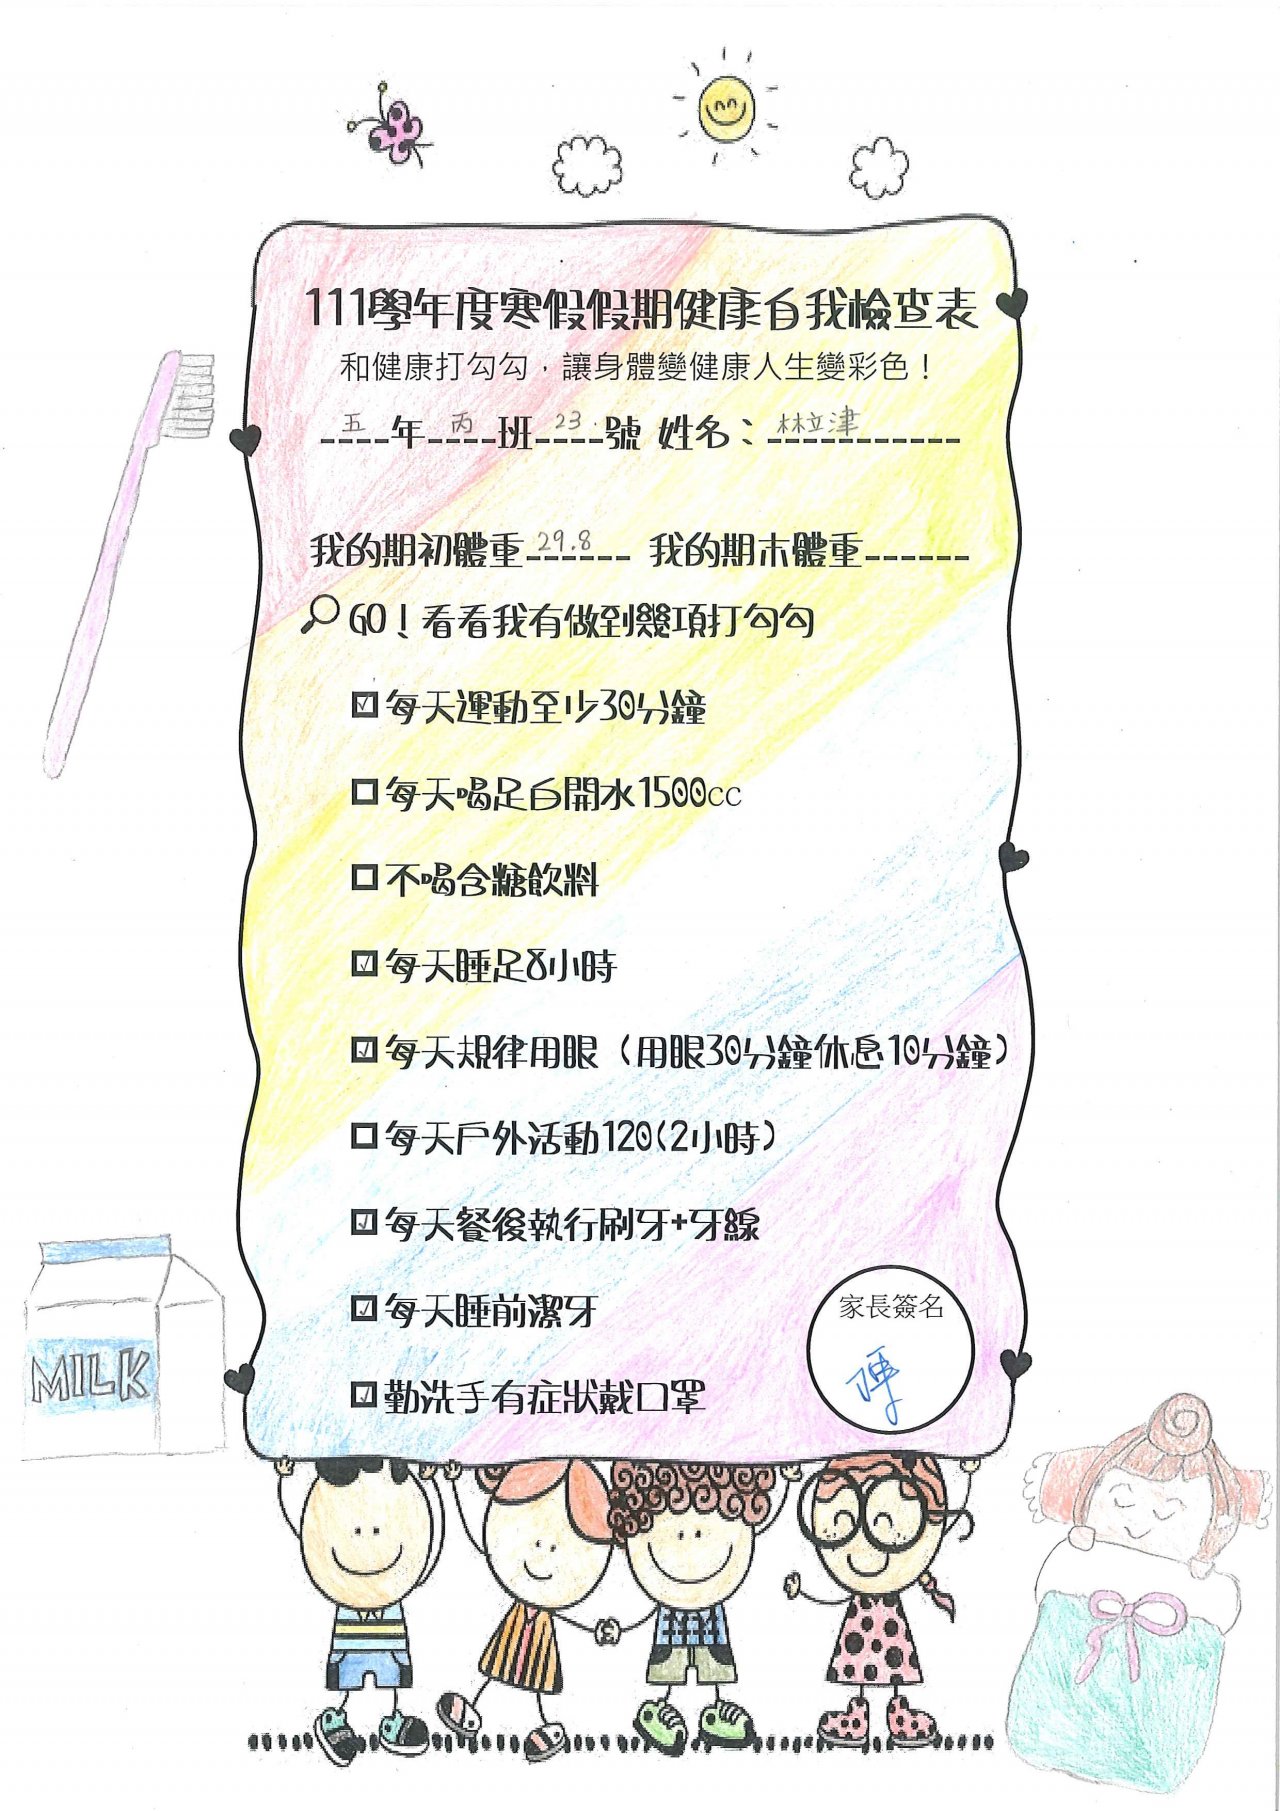 111學年度寒假假期健康自我檢查表
和健康打勾勾，讓身體變健康人生變彩色！
五年丙班23號 姓名：林立津
我的期初體重29.8 我的期末體重------
GO！看看我有做到幾項打勾勾
☑每天運動至少30分鐘
☐每天喝足白開水1500cc
☐不喝含糖飲料
☑每天睡足8小時
☑每天規律用眼（用眼30分鐘休息10分鐘）
☐每天戶外活動120(2小時)
☑每天餐後執行刷牙+牙線
☑每天睡前潔牙
☑勤洗手有症狀戴口罩
家長簽名
陳
MILK